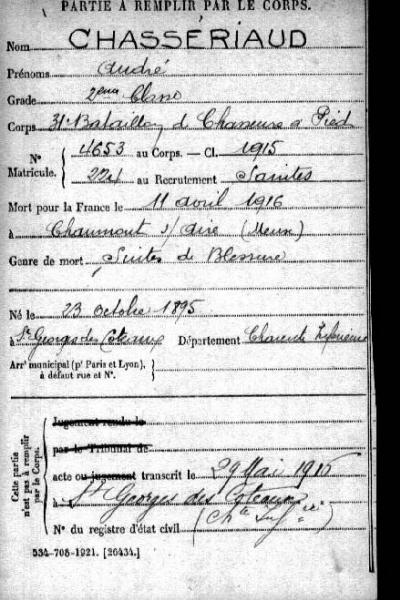 PARTIE À REMPLIR PAR LE CORPS.
Nom CHASSÉRIAUD
Prénoms André
Grade 2ème Classe
Corps 31e Bataillon de Chasseurs à Pied
N° Matricule. { 4653 au Corps. — Cl. 1915
au Recrutement Saintes
Mort pour la France le 11 avril 1916
à Chaumont s/ Aire (Meuse)
Genre de mort Suites de Blessure
Né le 23 octobre 1895
à St Georges des Coteaux Département Charente Inférieure
Arr¹ municipal (p¹ Paris et Lyon), à défaut rue et N°.
Cette partie n'est pas à remplir par le Corps.
Jugement rendu le
par le Tribunal de
acte ou jugement transcrit le 29 Mai 1916
à St Georges des Coteaux
N° du registre d'état civil (Chte Infre)
534-708-1921. [26434.]